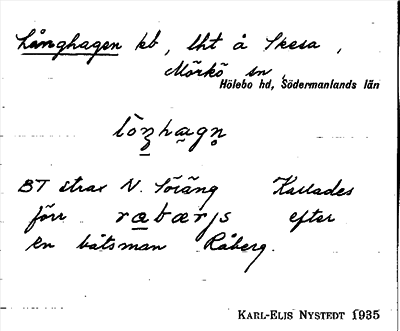 Långhagen kb, lht å Skesa,
Mörkö sn,
Hölebo hd, Södermanlands län
BT strax N. Söräng Kallades
förr efter
en båtsman Råberg.
KARL-ELIS NYSTEDT 1935